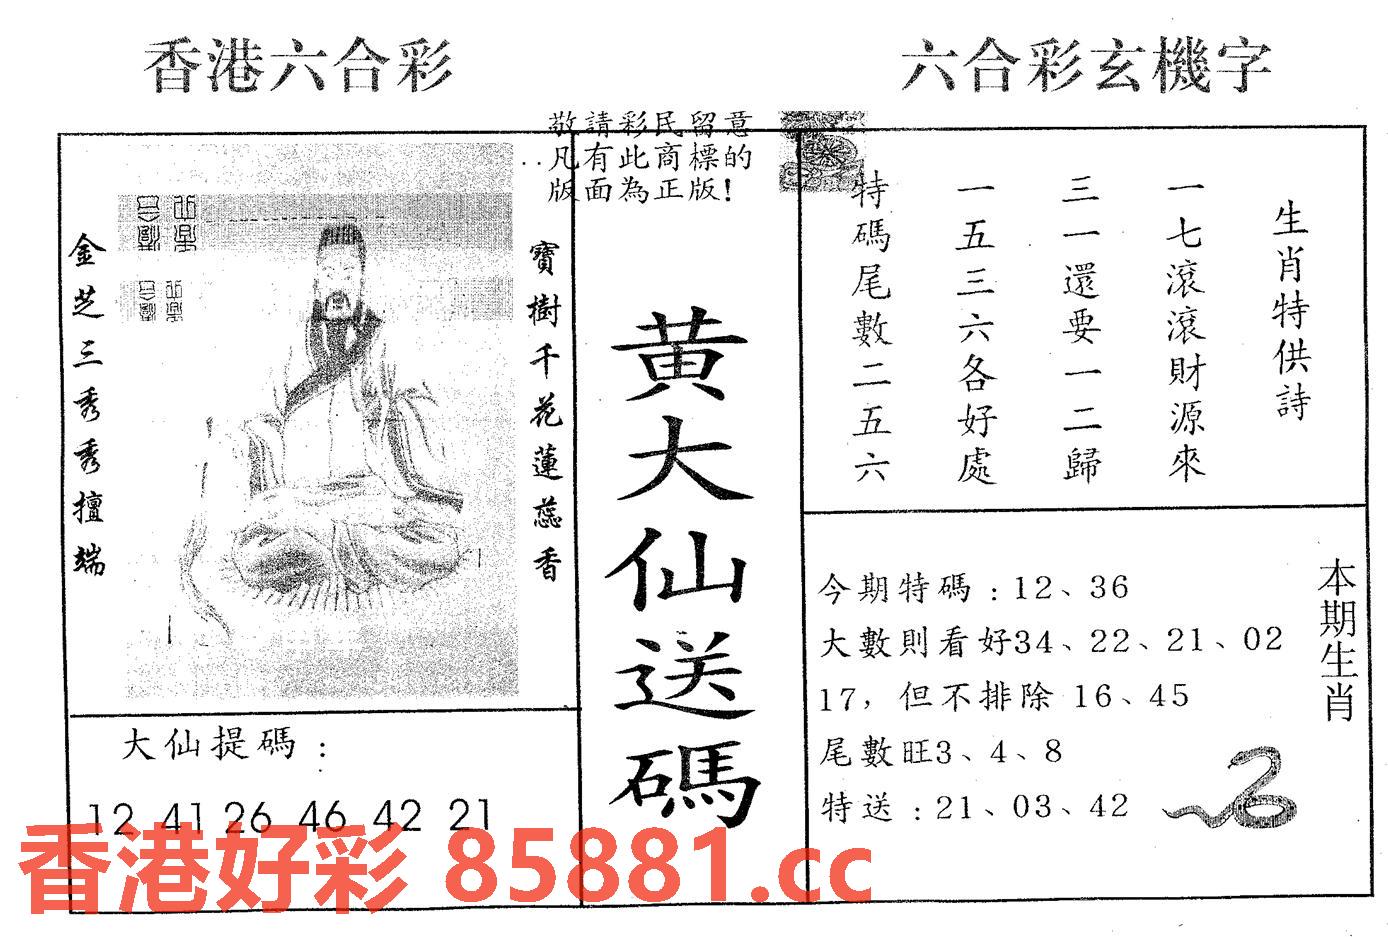 香港六合彩
六合彩玄機字
敬請彩民留意
凡有此商標的
版面為正版!
金芝三秀秀擅端
寶樹千花蓮蕊香
黄大仙送碼
生肖特供詩
一七滾滾財源來
三一還要一二歸
一五三六各好處
特碼尾數二五六
大仙提碼：
12 41 26 46 42 21
本期生肖
今期特碼：12、36
大數則看好34、22、21、02
17，但不排除 16、45
尾數旺3、4、8
特送：21、03、42
香港好彩 85881.cc